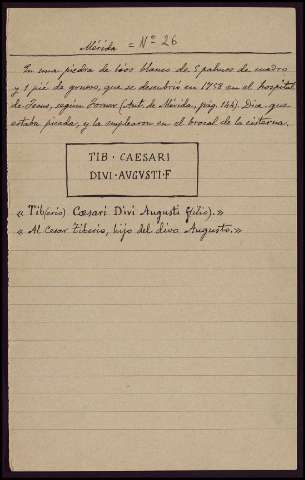 Mérida = Nº 26
En una piedra de loos blanco de 5 palmos de cuadro
y 1 pié de grueso, que se descubrió en 1758 en el hospital
de Jesus, según Forner (Ant. de Mérida, pág. 144). Dice que
estaba picada, y la emplearon en el brocal de la cisterna.
TIB · CAESARI
DIVI · AVGVSTI · F
« Tib(erio) Cæsari Divi Augusti f(ilio). »
« Al Cesar Tiberio, hijo del divo Augusto. »